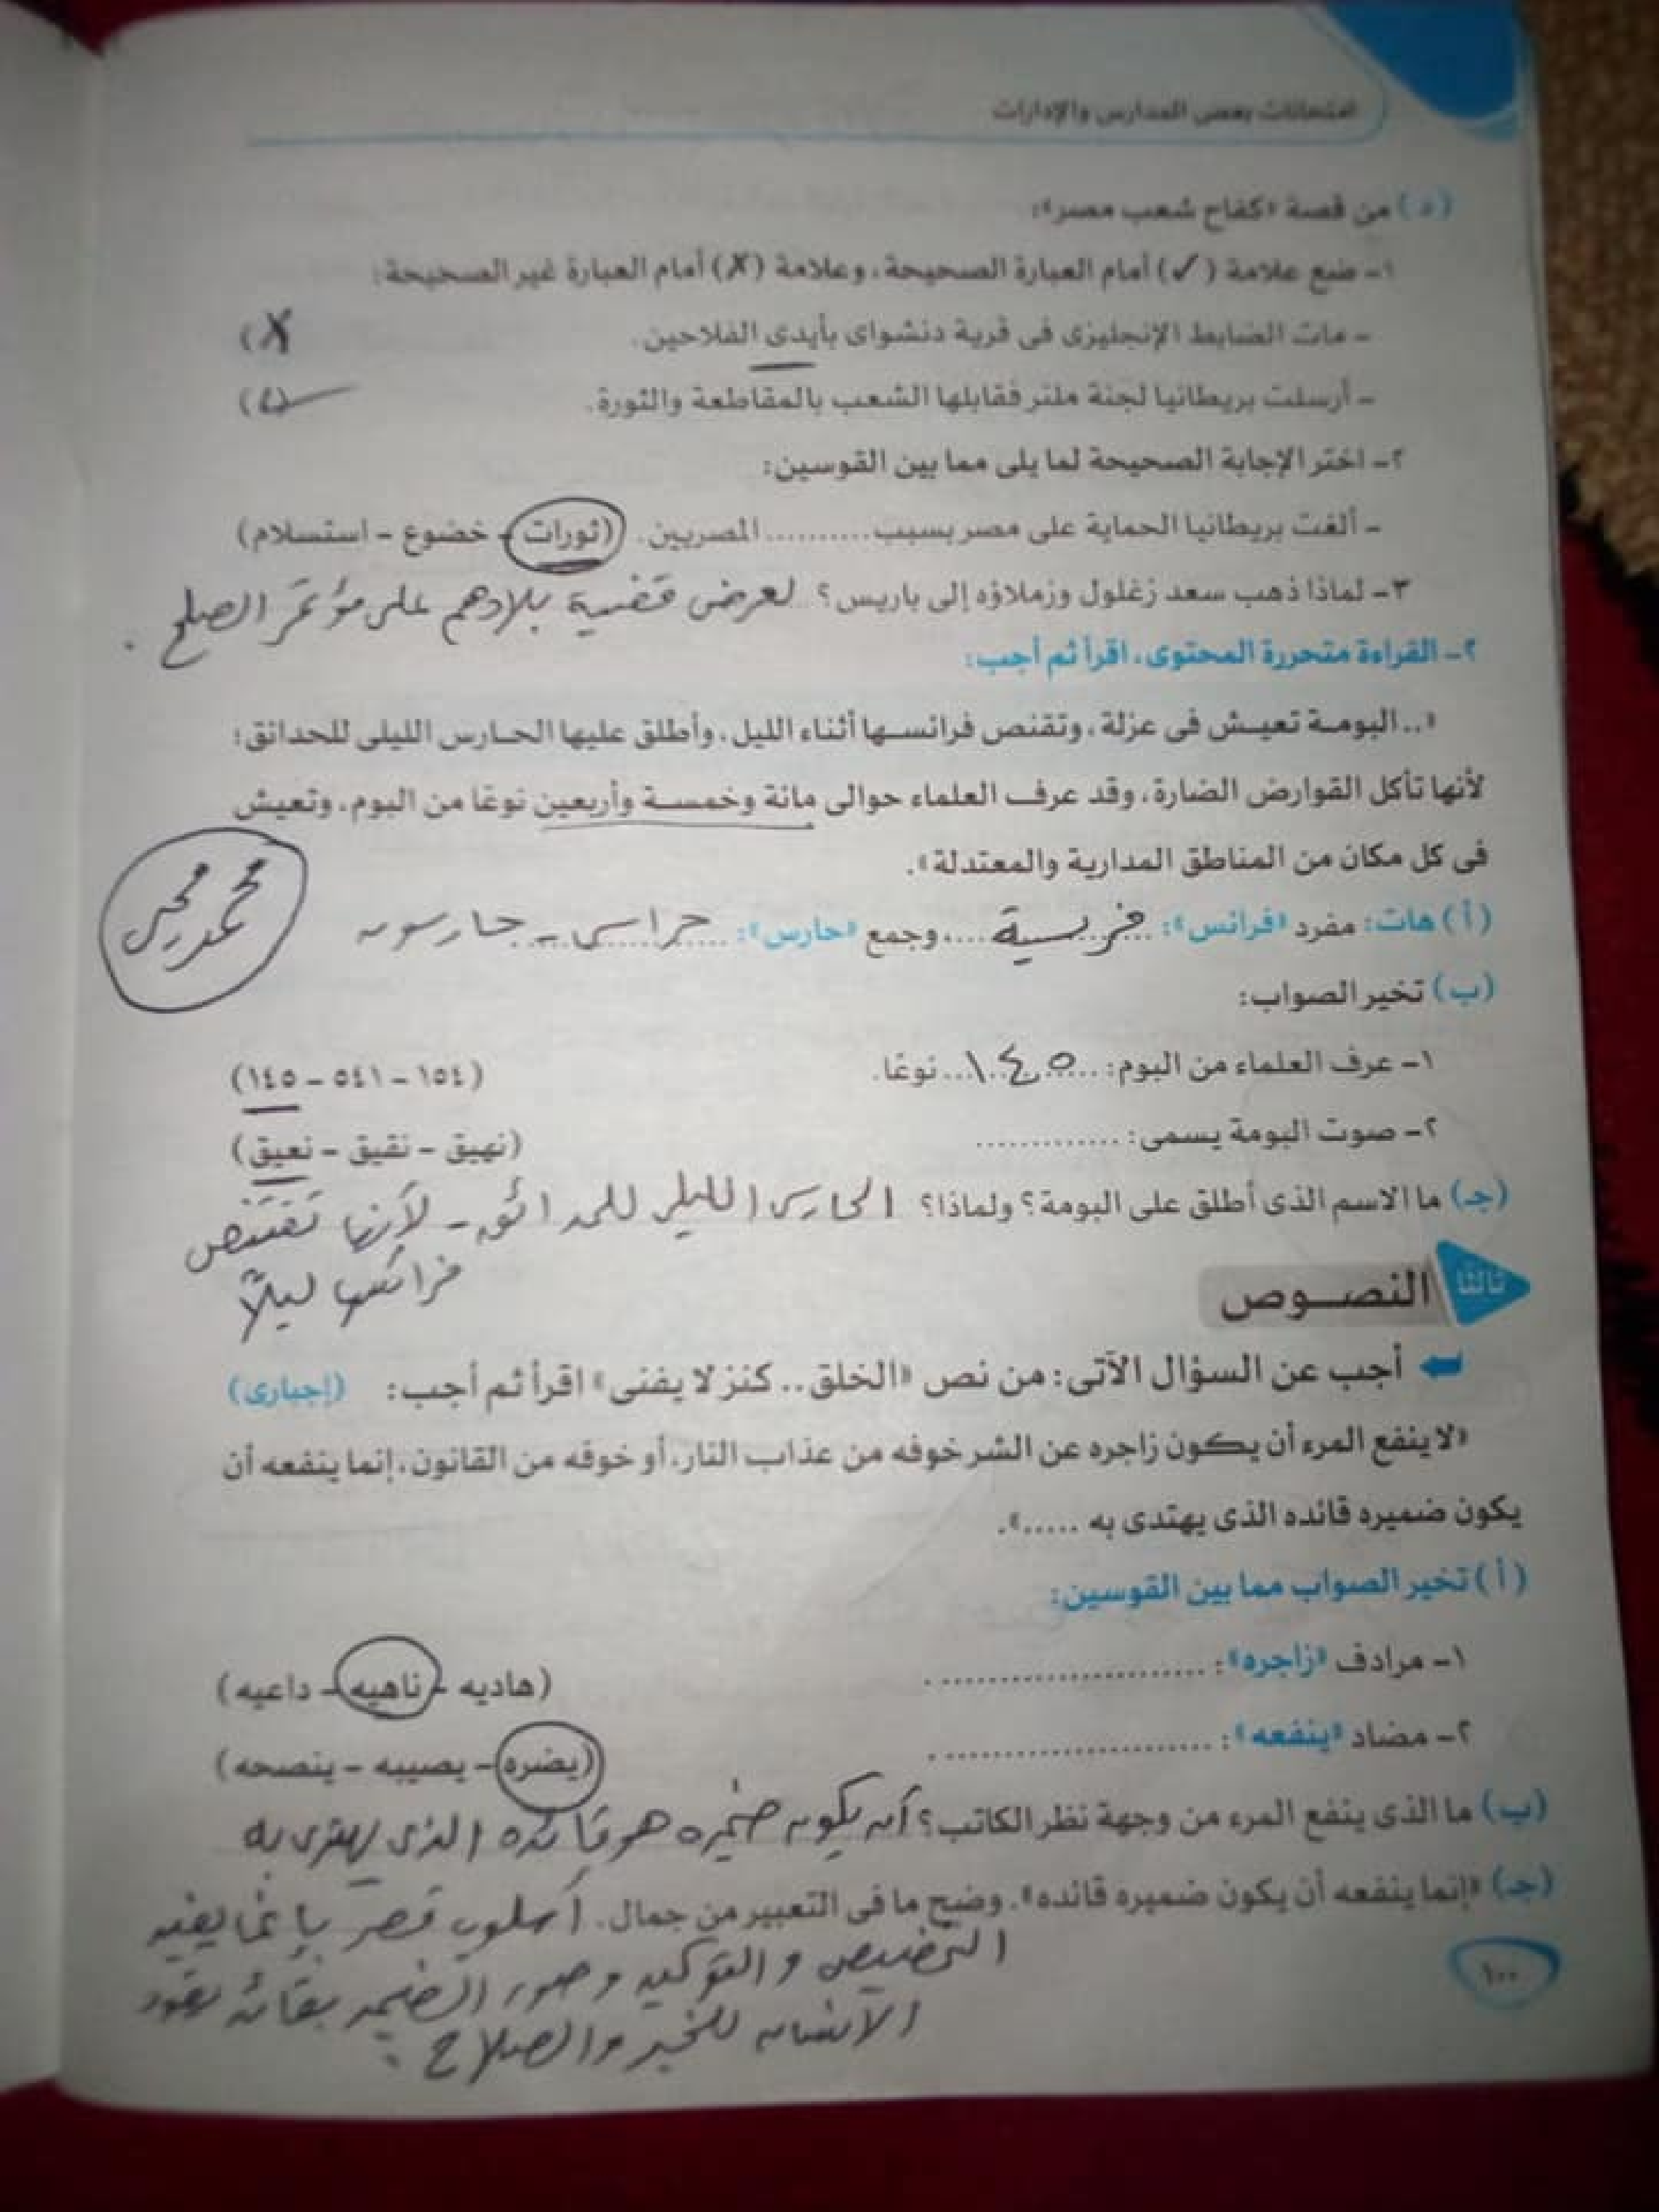 امتحانات بعض المدارس والإدارات
(د) من قصة «كفاح شعب مصر»:
١- ضع علامة (✓) أمام العبارة الصحيحة، وعلامة (X) أمام العبارة غير الصحيحة:
- مات الضابط الإنجليزى فى قرية دنشواى بأيدى الفلاحين. (X)
- أرسلت بريطانيا لجنة ملنر فقابلها الشعب بالمقاطعة والثورة. (✓)
٢- اختر الإجابة الصحيحة لما يلى مما بين القوسين:
- ألغت بريطانيا الحماية على مصر بسبب .......... المصريين. (ثورات - خضوع - استسلام)
٣- لماذا ذهب سعد زغلول وزملاؤه إلى باريس؟ لعرض قضية بلادهم على مؤتمر الصلح .
٢- القراءة متحررة المحتوى، اقرأ ثم أجب:
«.. البومة تعيش فى عزلة، وتقنص فرائسها أثناء الليل، وأطلق عليها الحارس الليلى للحدائق؛
لأنها تأكل القوارض الضارة، وقد عرف العلماء حوالى مائة وخمسة وأربعين نوعًا من البوم، وتعيش
فى كل مكان من المناطق المدارية والمعتدلة».
(أ) هات: مفرد «فرائس»: فريسة ....، وجمع «حارس»: حراس - حارسون
محمد محيى
(ب) تخير الصواب:
١- عرف العلماء من البوم: ١٤٥ نوعًا. (١٥٤ - ٥٤١ - ١٤٥)
٢- صوت البومة يسمى: .............. (نهيق - نقيق - نعيق)
(جـ) ما الاسم الذى أطلق على البومة؟ ولماذا؟ الحارس الليلى للحدائق - لأنها تقتنص
فرائسها ليلاً
ثالثا النصــوص
أجب عن السؤال الآتى: من نص «الخلق.. كنز لا يفنى» اقرأ ثم أجب: (إجبارى)
«لا ينفع المرء أن يكون زاجره عن الشر خوفه من عذاب النار، أو خوفه من القانون، إنما ينفعه أن
يكون ضميره قائده الذى يهتدى به .....».
(أ) تخير الصواب مما بين القوسين:
١- مرادف «زاجره»: .......................... (هاديه - ناهيه - داعيه)
٢- مضاد «ينفعه»: .......................... (يضره - يصيبه - ينصحه)
(ب) ما الذى ينفع المرء من وجهة نظر الكاتب؟ أن يكون ضميره هو قائده الذى يهتدى به
(جـ) «إنما ينفعه أن يكون ضميره قائده». وضح ما فى التعبير من جمال. أسلوب قصر بإنما يفيد
التخصيص والتوكيد وصور الضمير بقائد يقود
الانسان للخير والصلاح .
١٠٠